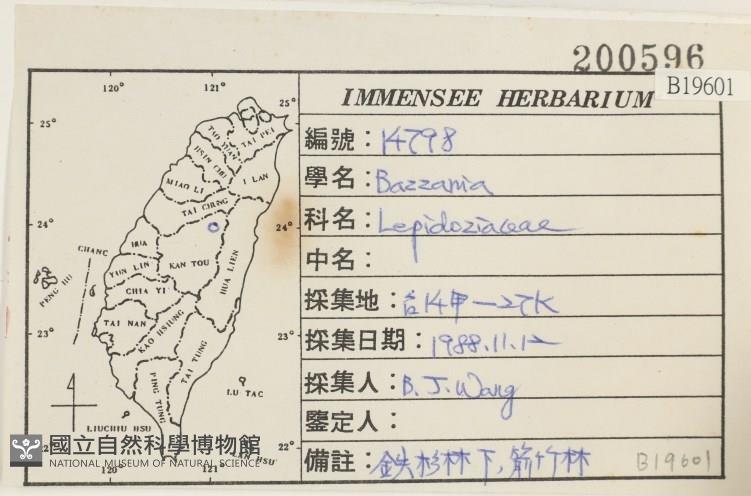 200596
B19601
IMMENSEE HERBARIUM
編號：14798
學名：Bazzania
科名：Lepidoziaceae
中名：
採集地：台14甲—27K
採集日期：1988.11.12
採集人：B.J.Wang
鑒定人：
備註：鉄杉林下,箭竹林
B19601
120° 121°
25° 25°
TAO YUAN
TAI PEI
HSIN CHU
MIAO LI
I LAN
TAI CHUNG
24° 24°
CHANG HUA
PENG HU
YUN LIN
NAN TOU
HUA LIEN
CHIA YI
TAI NAN
KAO HSIUNG
23° 23°
TAI TUNG
PING TUNG
LU TAO
LIUCHIU HSU
LAN HSU
22°
120° 121°
國立自然科學博物館
NATIONAL MUSEUM OF NATURAL SCIENCE